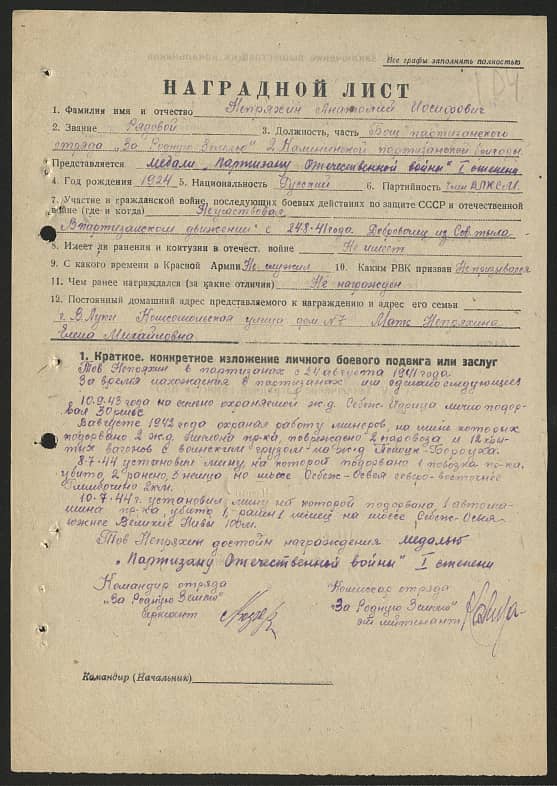 Все графы заполнять полностью
104
НАГРАДНОЙ ЛИСТ
1. Фамилия имя и отчество Непряхин Анатолий Иосифович
2. Звание Рядовой 3. Должность, часть Боец партизанского
отряда „За Родную Землю" 2 Калининской партизанской бригады
Представляется медали „Партизану Отечественной войны" I степени
4. Год рождения 1924 5. Национальность Русский 6. Партийность член ВЛКСМ
7. Участие в гражданской войне, последующих боевых действиях по защите СССР и отечественной
войне (где и когда) Не участвовал,
В партизанском движении с 24.8.41 года. Доброволец из Сов. тыла
8. Имеет ли ранения и контузии в отечест. войне Не имеет
9. С какого времени в Красной Армии Не служил 10. Каким РВК призван Не призывался
11. Чем ранее награждался (за какие отличия) Не награжден
12. Постоянный домашний адрес представляемого к награждению и адрес его семьи
г. В. Луки Комсомольская улица дом № 7 Мать Непряхина
Елена Михайловна
1. Краткое, конкретное изложение личного боевого подвига или заслуг
Тов Непряхин в партизанах с 24 августа 1941 года.
За время нахождения в партизанах им сделано следующее
10.9.43 года на сильно охраняемой ж.д. Себеж-Идрица лично подор-
вал 30 рельс
В августе 1942 года охранял работу минеров, на мине которых
подорвано 2 ж.д. эшелона пр-ка, повреждено 2 паровоза и 12 кры-
тых вагонов с воинским грузом на ж.д. Полоцк-Борковичи
8.7.44 установил мину, на которой подорвано 1 повозка пр-ка,
убито 2 ранено 3 немца, на шоссе Себеж-Освея северо-восточнее
2 км.
10.7.44 г. установил мину на которой подорвана 1 автома-
шина пр-ка, убито 1, ранен 1 немец на шоссе Себеж-Освея
южнее Великие Нивы 100 м.
Тов Непряхин достоин награждения медалью
„Партизану Отечественной войны" I степени
Командир отряда Комиссар отряда
„За Родную Землю" „За Родную Землю"
сержант лейтенант
Командир (Начальник)